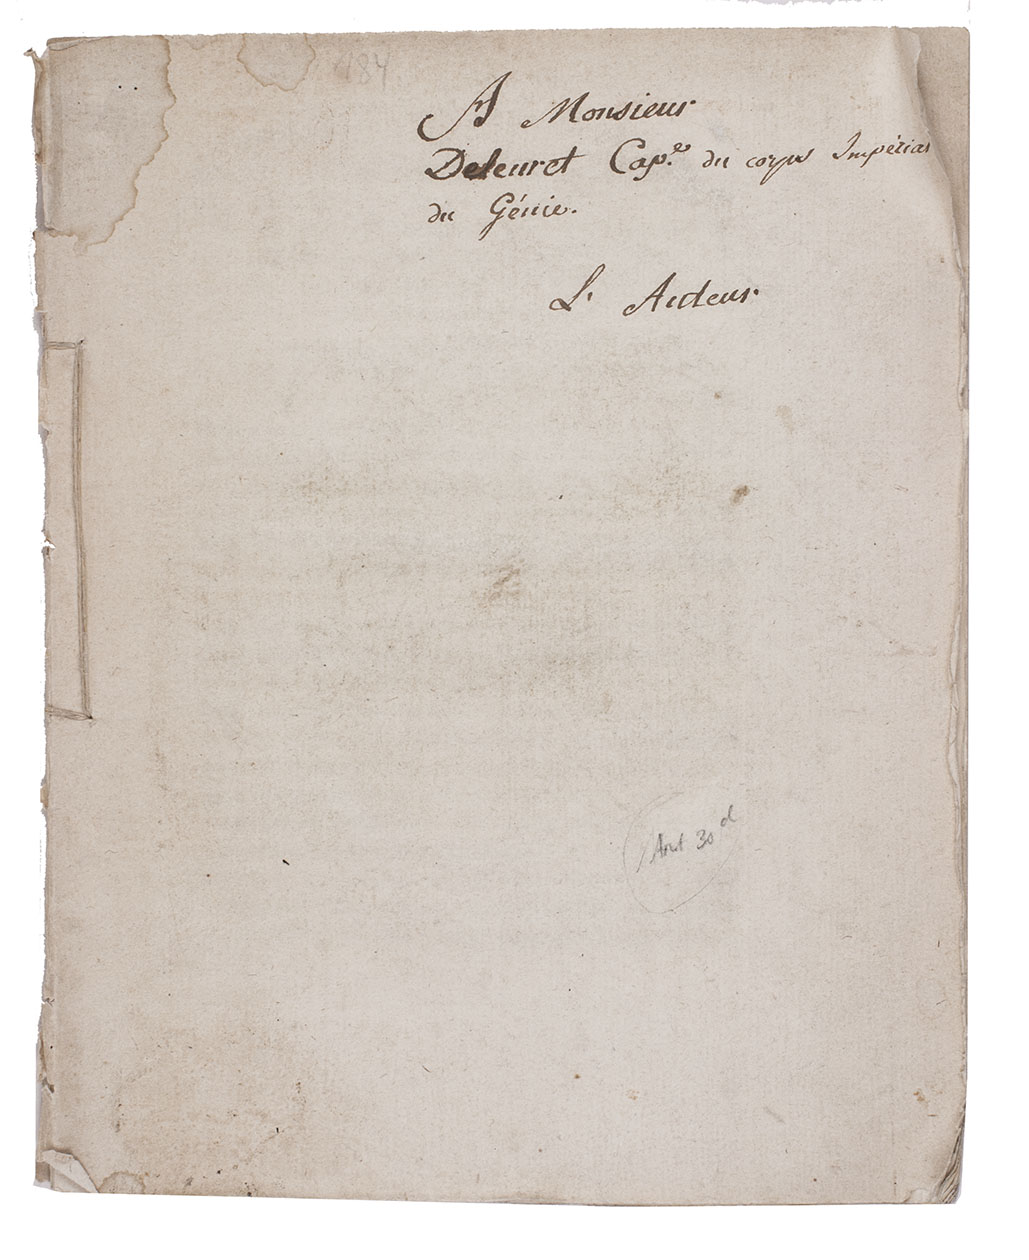 184
A Monsieur
Deleuret Cap.e du corps Impérial
du Génie.
L' Auteur
Aout 30 d